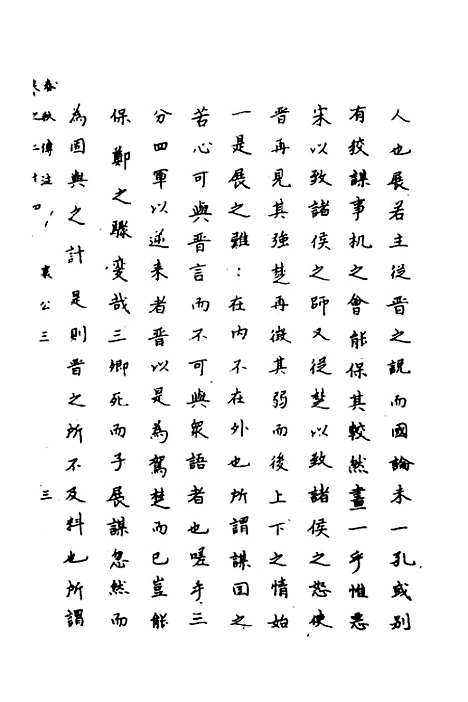 人也展若主從晉之説而國論未一孔或別
有狡謀事机之會能保其較然畫一乎惟惡
宋以致諸侯之師又從楚以致諸侯之怒使
晋再見其強楚再微其弱而後上下之情始
一是展之雖:在内不在外也所謂謀回之
苦心可與晋言而不可與衆語者也嗟乎三
分四軍以逆来者晋以是為駕楚而已豈能
保鄭之驟变哉三卿死而子展謀忽然而
為固與之計是則晋之所不及料也所謂
春秋傳注 襄公三 三
卷之二十四